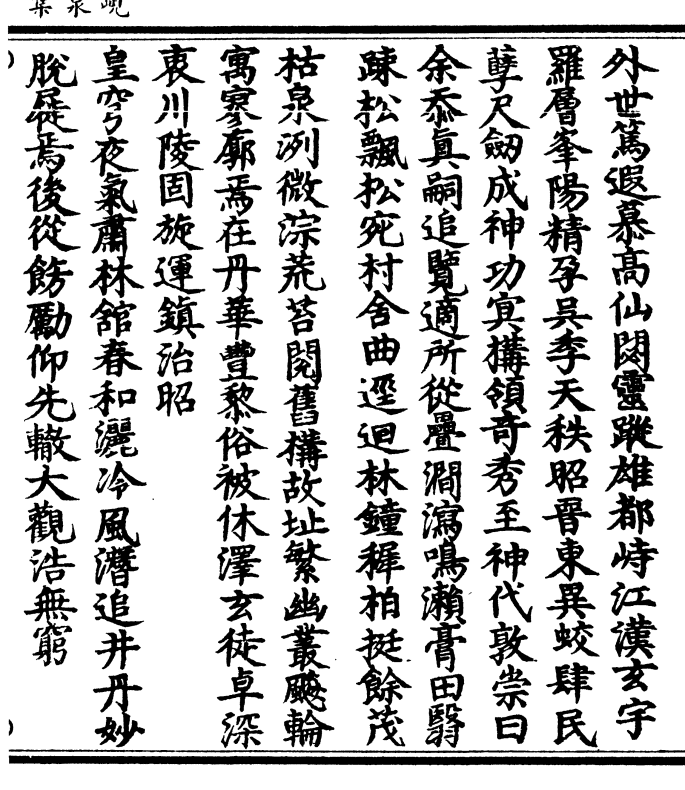 峴泉集
外世篤遐慕高仙閟靈蹤雄都峙江漢玄宇
羅層峯陽精孕吳季天秩昭晉東異蛟肆民
孽尺劒成神功㝠搆領竒秀至神代敦崇曰
余忝眞嗣追覽適所從疊澗瀉鳴瀨膏田翳
踈松飄松宛村舍曲逕迴林鐘穉柏挺餘茂
枯泉洌微淙荒苔閱舊構故址繁幽叢飈輪
寓寥廓焉在丹華豐黎俗被休澤玄徒卓深
衷川陵固旋運鎮治昭
皇穹夜氣肅林舘春和灑冷風潛追井丹妙
脫屣焉後從飭勵仰先轍大觀浩無窮